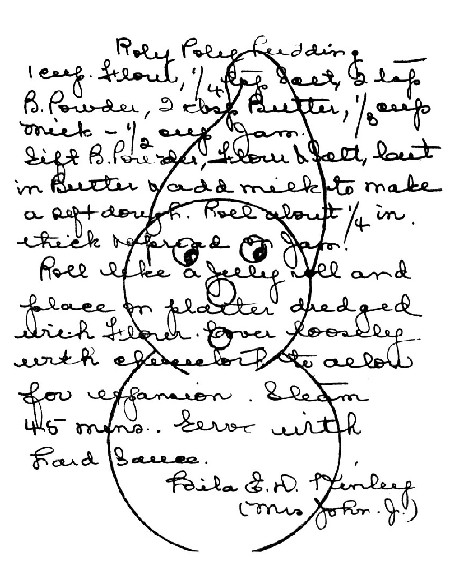 Roly Poly Pudding
1 cup Flour, 1/4 tsp Salt, 2 tsp
B. Powder, 2 tbsp Butter, 1/3 cup
milk - 1/2 cup Jam.
Sift B. Powder, Flour & Salt, cut
in Butter & add milk to make
a soft dough. Roll about 1/4 in.
thick & spread on Jam.
Roll like a jelly roll and
place on platter dredged
with Flour. Cover loosely
with cheesecloth to allow
for expansion. Steam
45 mins. Serve with
hard Sauce.
E. D.
(Mrs John J.)